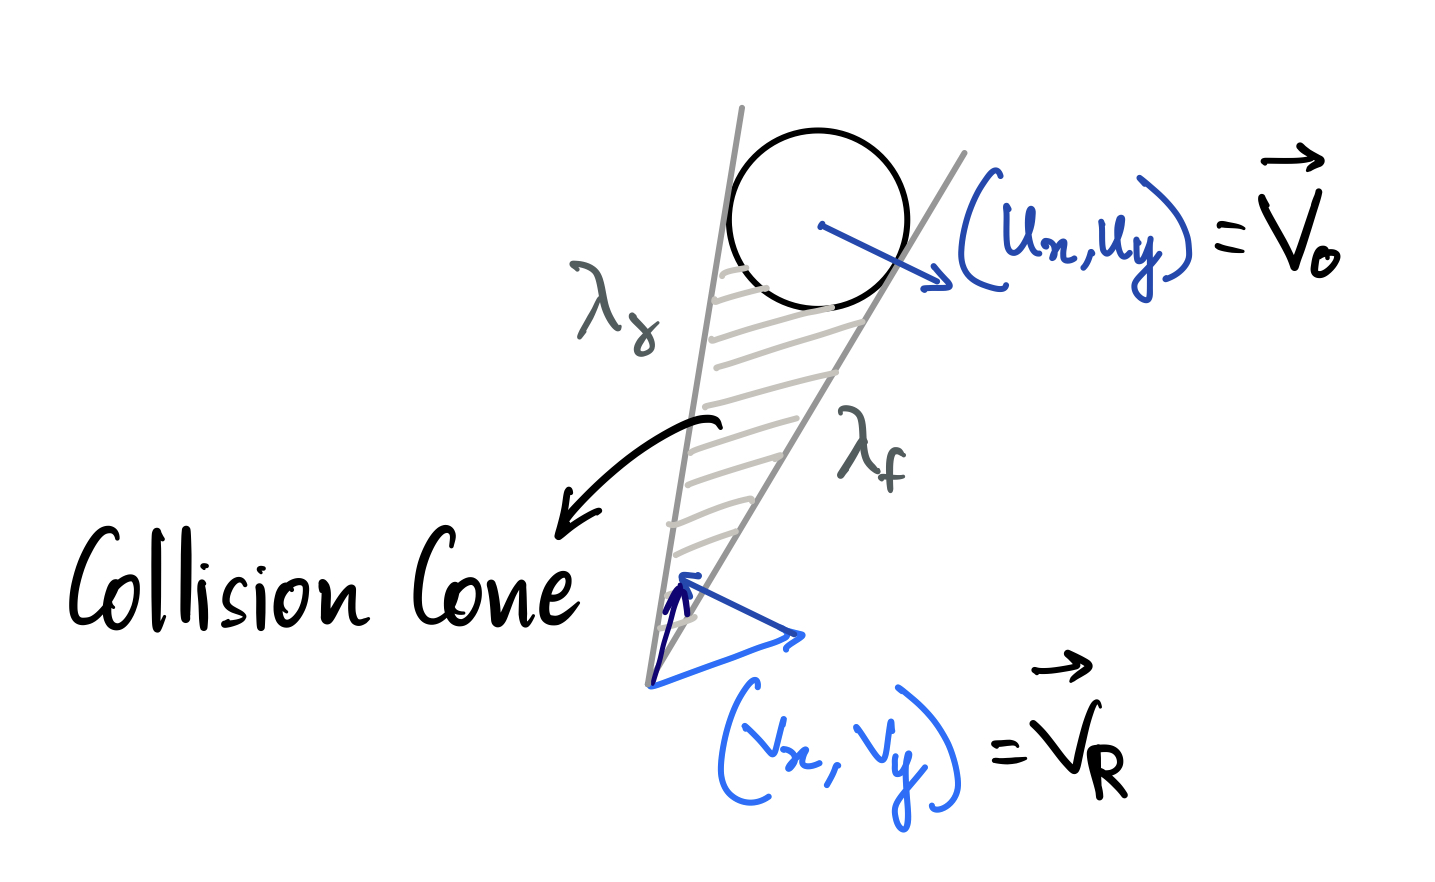 (uₓ, u_y) = V⃗₀
λᵧ
λ_f
Collision Cone
(vₓ, v_y) = V⃗_R